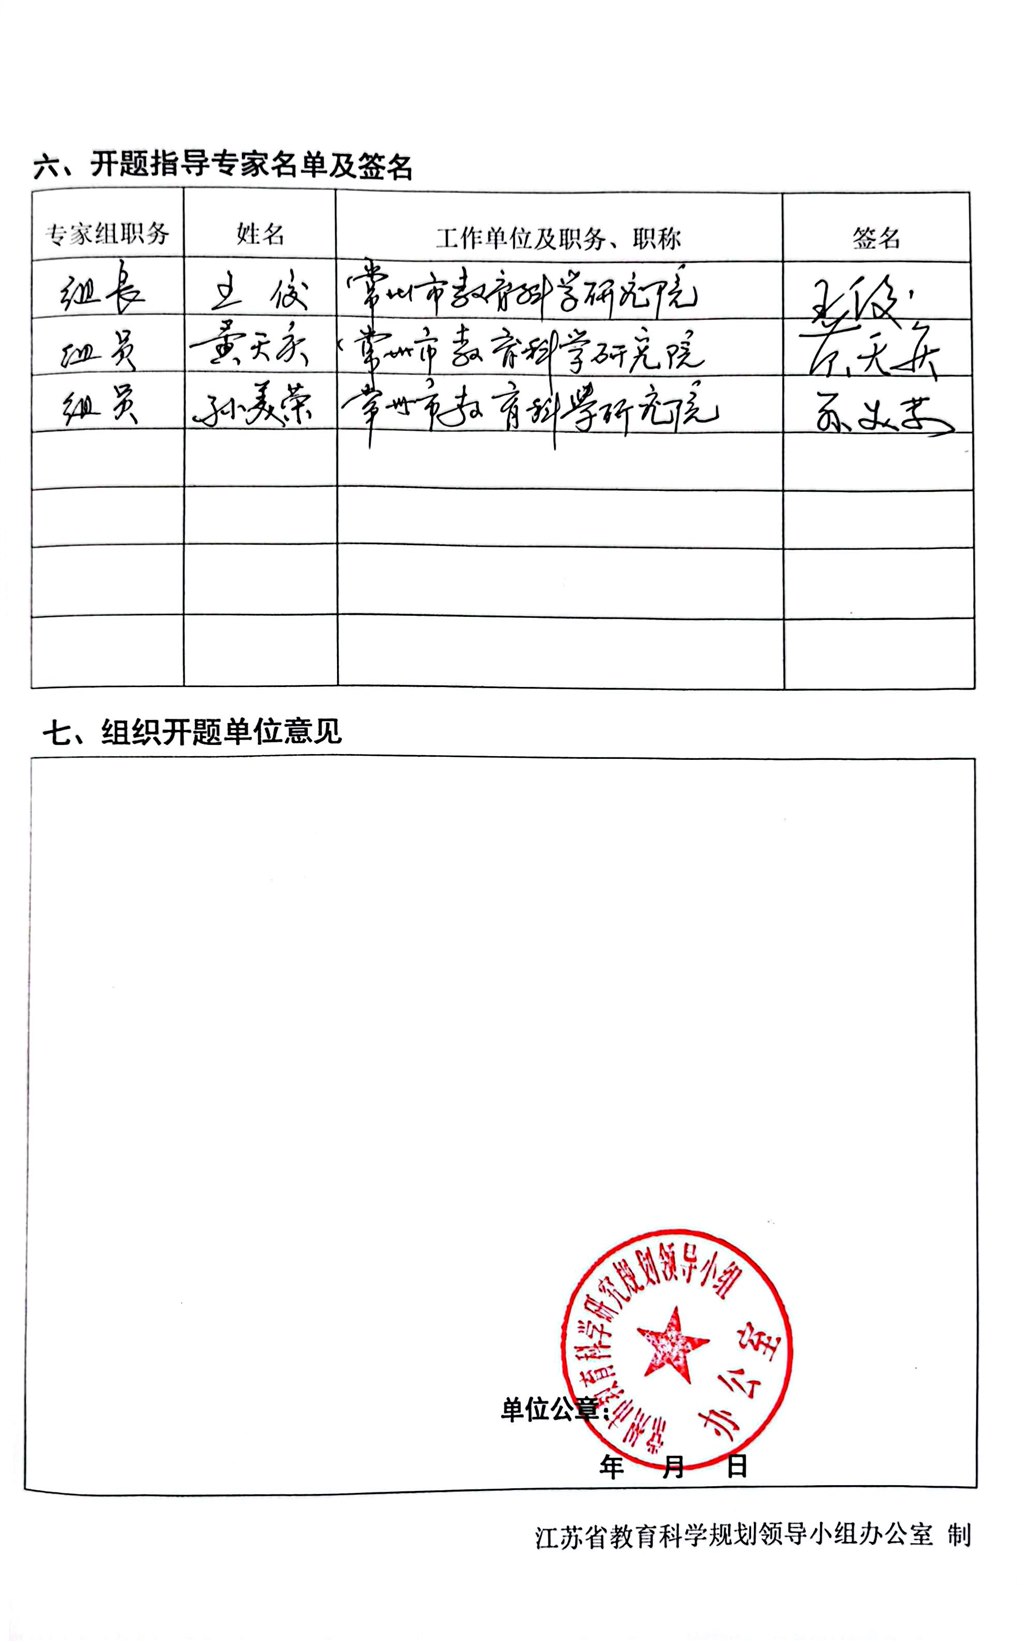 六、开题指导专家名单及签名
专家组职务 姓名 工作单位及职务、职称 签名
组长 王俊 常州市教育科学研究院 王俊
组员 黄天庆 常州市教育科学研究院 黄天庆
组员 孙美荣 常州市教育科学研究院 孙美荣
七、组织开题单位意见
常州市教育科学研究规划领导小组
办公室
单位公章：
年 月 日
江苏省教育科学规划领导小组办公室 制